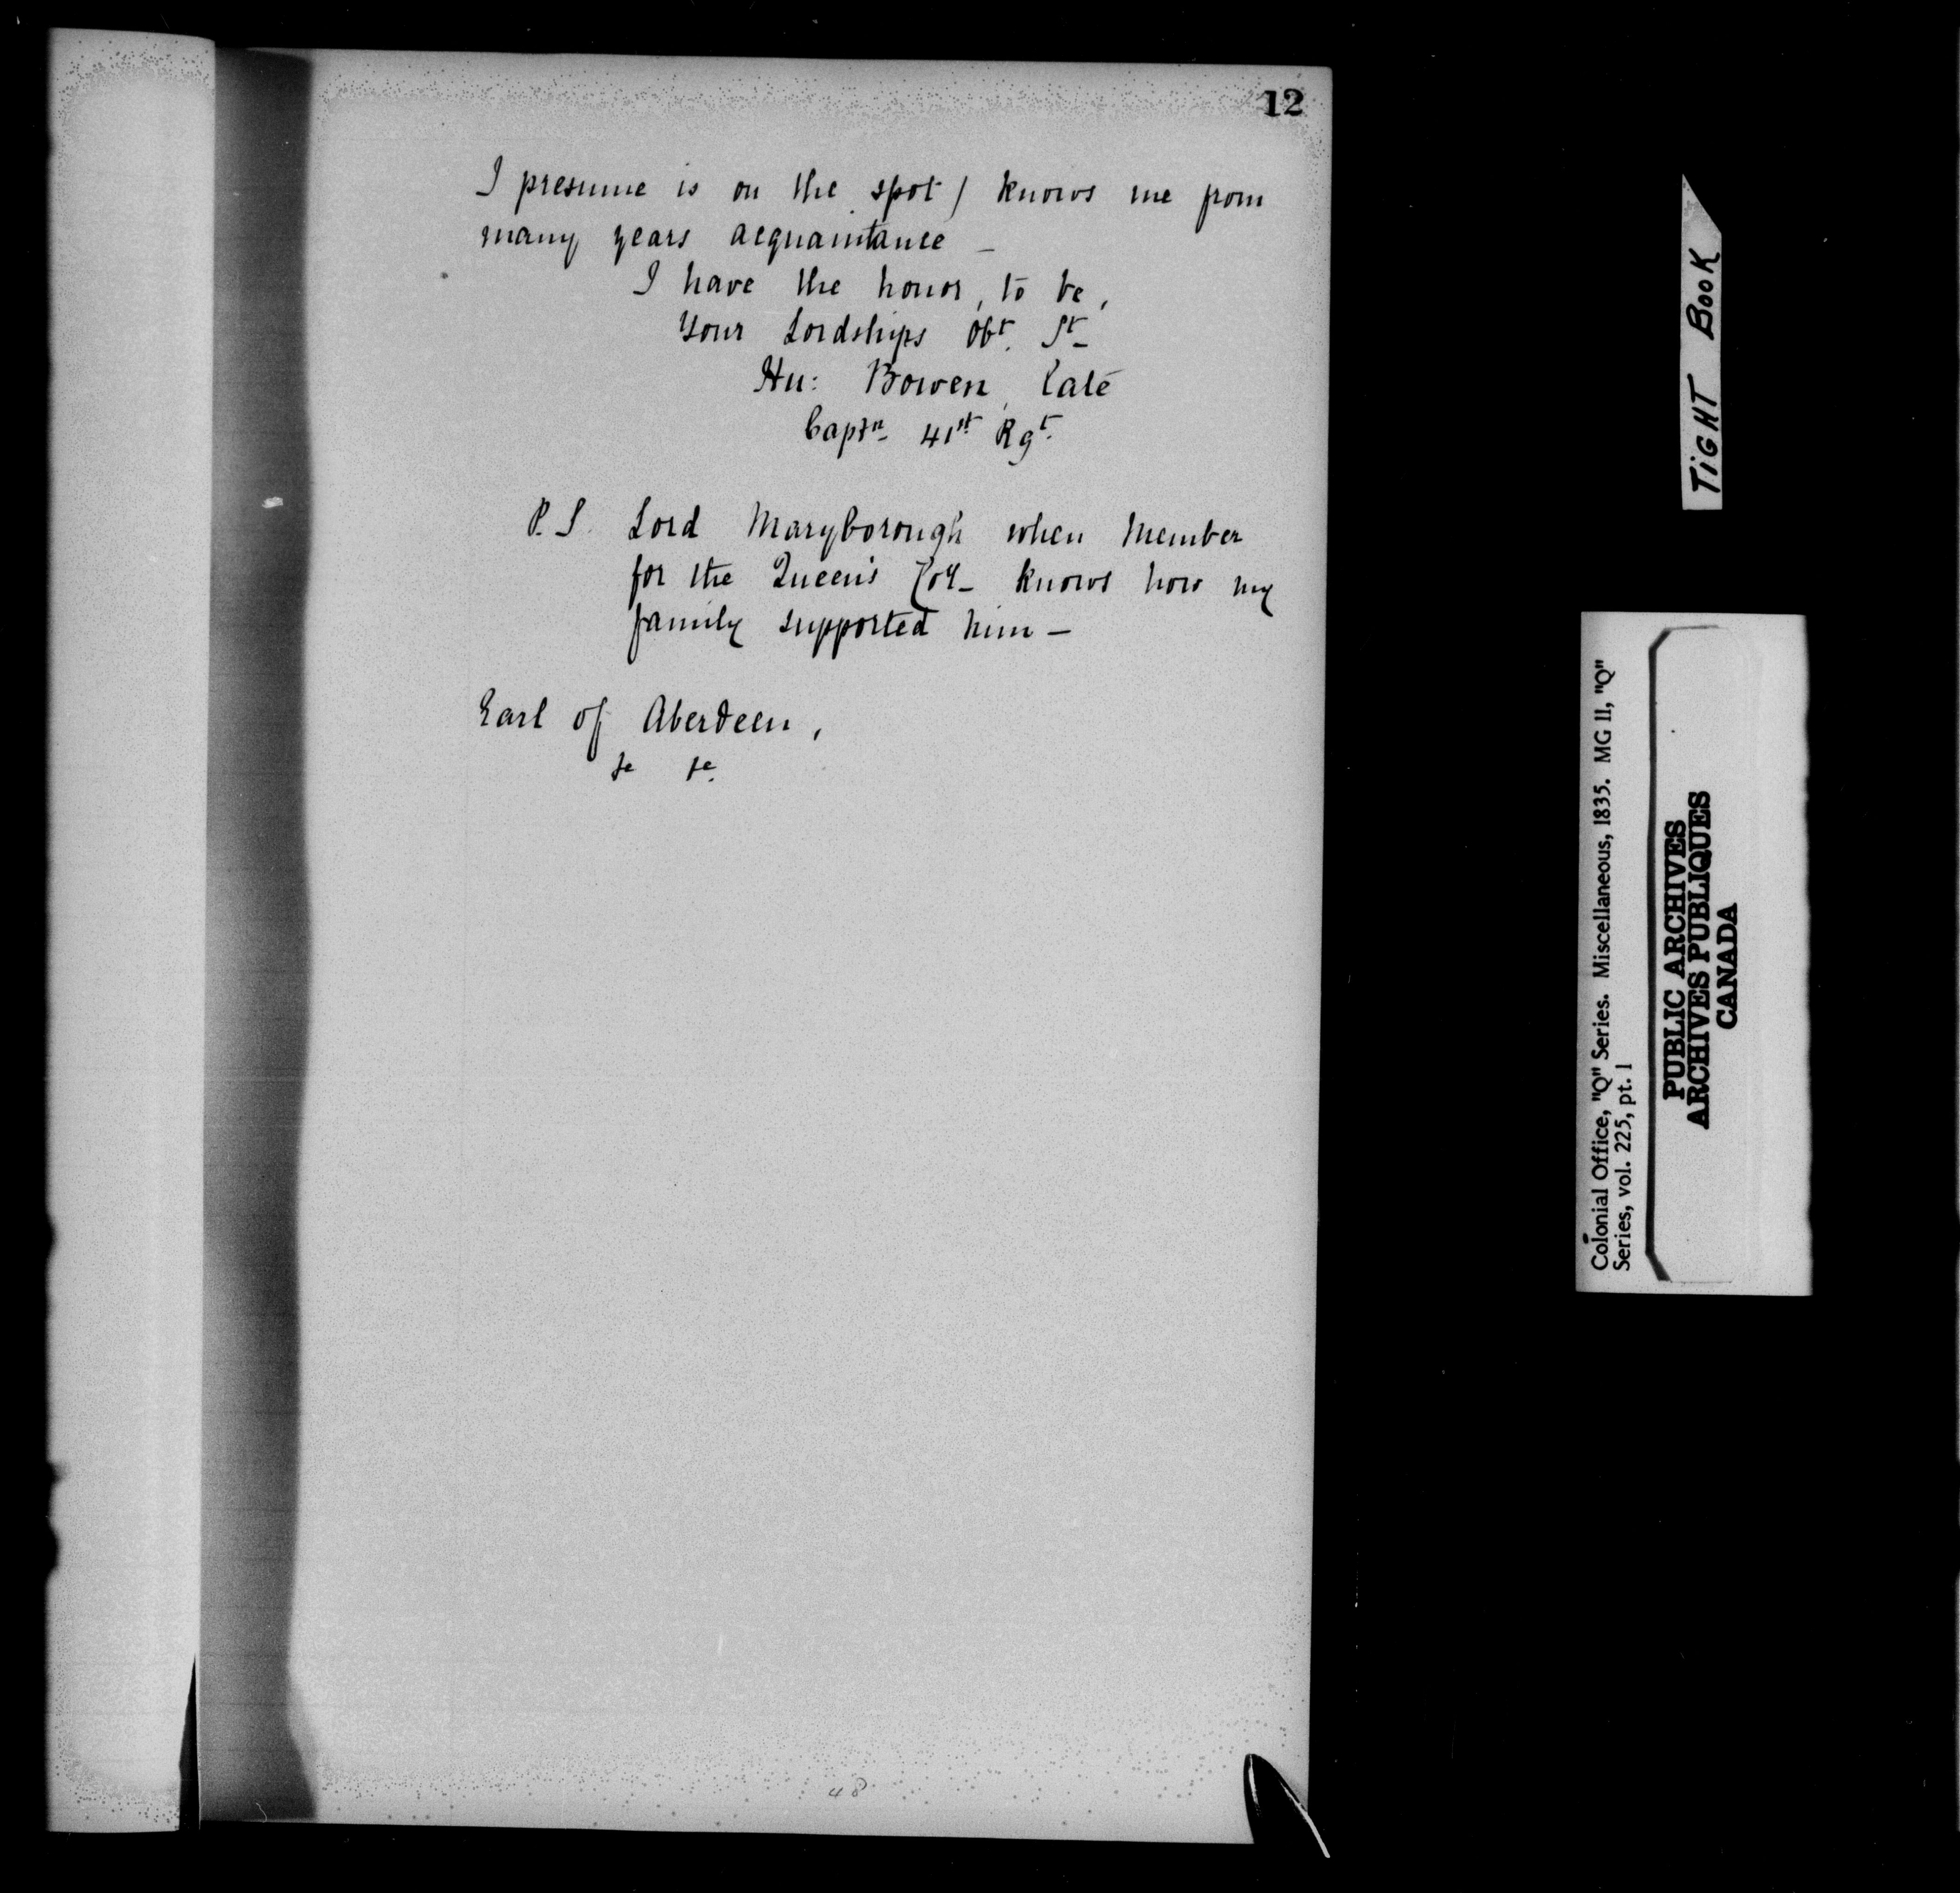 12
I presume is on the spot) knows me from
many years acquaintance —
I have the honor, to be,
Your Lordships Obt. St
Hu: Bowen, late
Captn 41st Rgt.
P.S. Lord Maryborough when Member
for the Queen's Coy— knows how my
family supported him —
Earl of Aberdeen,
&c &c.
48
TiGHT BOOK
Colonial Office, "Q" Series. Miscellaneous, 1835. MG 11, "Q"
Series, vol. 225, pt. 1
PUBLIC ARCHIVES
ARCHIVES PUBLIQUES
CANADA